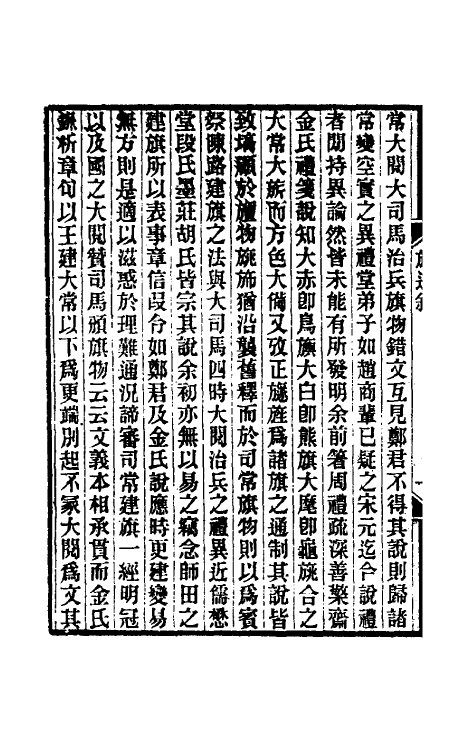 常大閱大司馬治兵旗物錯文互見鄭君不得其說則歸諸
常變空實之異禮堂弟子如趙商輩已疑之宋元迄今說禮
者閒持異論然皆未能有所發明余前箸周禮疏深善棃齋
金氏禮箋說知大赤卽鳥旟大白卽熊旗大麾卽龜旐合之
大常大旂而方色大備又攷正旞旌爲諸旗之通制其說皆
致塙顯於旜物旐斾猶沿襲舊釋而於司常旗物則以爲賓
祭陳路建旗之法與大司馬四時大閱治兵之禮異近儒懋
堂段氏墨莊胡氏皆宗其說余初亦無以易之竊念師田之
建旗所以表事章信叚令如鄭君及金氏說應時更建變易
無方則是適以滋惑於理難通況諦審司常建旗一經明冠
以及國之大閱贊司馬頒旗物云云文義本相承貫而金氏
鉥析章句以王建大常以下爲更端別起不冡大閱爲文其